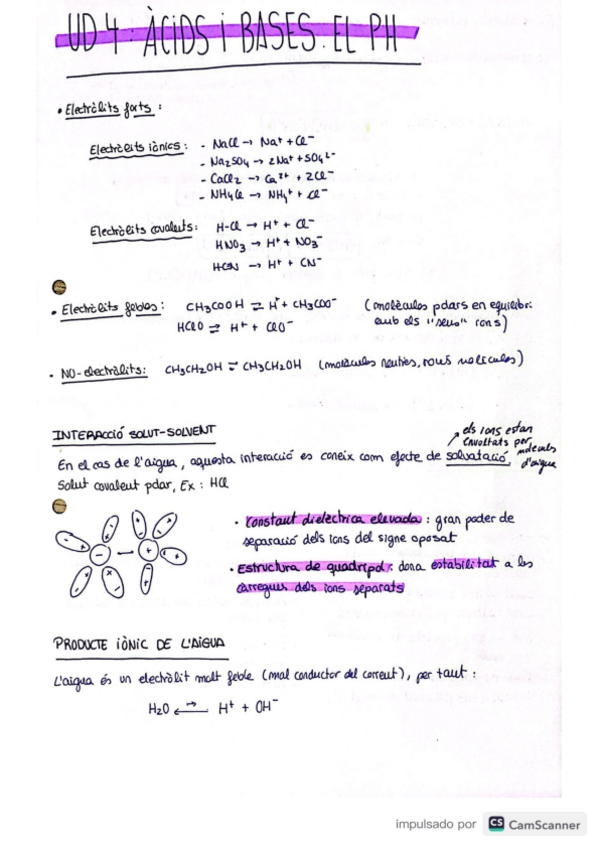 UD 4: ÀCIDS i BASES. EL PH
• Electròlits forts :
Electròlits iònics : - NaCl → Na⁺ + Cl⁻
- Na₂SO₄ → 2Na⁺ + SO₄²⁻
- CaCl₂ → Ca²⁺ + 2Cl⁻
- NH₄Cl → NH₄⁺ + Cl⁻
Electròlits covalents : H-Cl → H⁺ + Cl⁻
HNO₃ → H⁺ + NO₃⁻
HCN → H⁺ + CN⁻
• Electròlits febles : CH₃COOH ⇌ H⁺ + CH₃COO⁻ (molècules polars en equilibri
HClO ⇌ H⁺ + ClO⁻ amb els "seus" ions)
• NO-electròlits: CH₃CH₂OH ⇌ CH₃CH₂OH (molècules neutres, molècules)
els ions estan
envoltats per
molècules
d'aigua
INTERACCIÓ SOLUT-SOLVENT
En el cas de l'aigua, aquesta interacció es coneix com efecte de solvatació
Solut covalent polar, Ex : HCl
• Constant dielèctrica elevada : gran poder de
separació dels ions del signe oposat
• Estructura de quadripol : dona estabilitat a les
càrregues dels ions separats
PRODUCTE IÒNIC DE L'AIGUA
L'aigua és un electròlit molt feble (mal conductor del corrent), per tant :
H₂O ⇌ H⁺ + OH⁻
impulsado por CS CamScanner